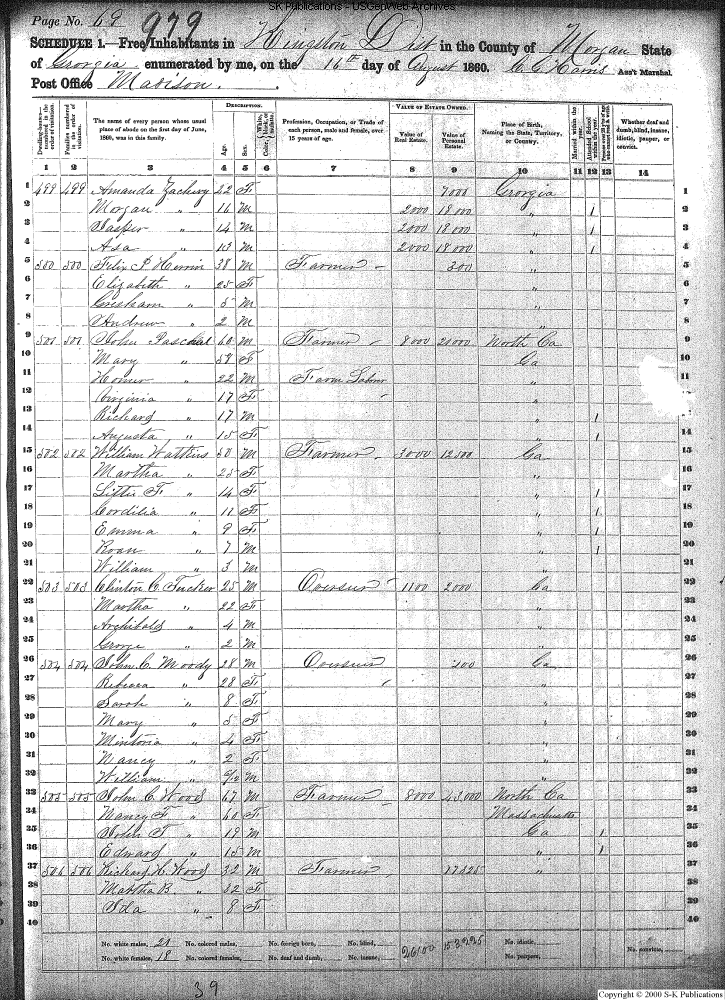 SK Publications - USGenWeb Archives
Page No. 69
979
SCHEDULE 1.—Free Inhabitants in Kingston Dist in the County of Morgan State
of Georgia enumerated by me, on the 16th day of August 1860. C. C. Davis Ass't Marshal.
Post Office Madison.
Dwelling-houses—numbered in the order of visitation.
Families numbered in the order of visitation.
The name of every person whose usual place of abode on the first day of June, 1860, was in this family.
DESCRIPTION.
Age.
Sex.
Color, White, black, or mulatto.
Profession, Occupation, or Trade of each person, male and female, over 15 years of age.
VALUE OF ESTATE OWNED.
Value of Real Estate.
Value of Personal Estate.
Place of Birth, Naming the State, Territory, or Country.
Married within the year.
Attended School within the year.
Whether deaf and dumb, blind, insane, idiotic, pauper, or convict.
1 2 3 4 5 6 7 8 9 10 11 12 13 14
1 499 499 Amanda Zachery 22 F 7000 Georgia 1
2 Morgan " 16 M 2000 18000 " / 2
3 Jasper " 14 M 2000 18000 " / 3
4 Asa " 13 M 2000 18000 " / 4
5 500 500 Felix P. Herrin 38 M Farmer 300 " 5
6 Elizabeth " 25 F " 6
7 Gresham " 5 M " 7
8 Andrew " 2 M " 8
9 501 501 John Paschal 60 M Farmer 8000 21000 North Ca 9
10 Mary " 58 F Ga 10
11 Homer " 22 M Farm Labor " 11
12 Virginia " 17 F " 12
13 Richard " 17 M " / 13
14 Augusta " 15 F " / 14
15 502 502 William Watkins 50 M Farmer 3000 12500 Ga 15
16 Martha " 25 F " 16
17 F. " 14 F " / 17
18 Cordilia " 11 F " / 18
19 Emma " 9 F " / 19
20 Roan " 7 M " / 20
21 William " 3 M " 21
22 503 503 Clinton C. Tucker 25 M Overseer 1100 2000 Ga 22
23 Martha " 22 F " 23
24 Archibald " 4 M " 24
25 George " 2 M " 25
26 504 504 John C. Moody 28 M Overseer 200 Ga 26
27 Rebecca " 28 F " 27
28 Sarah " 8 F " 28
29 Mary " 5 F " 29
30 " 4 F " 30
31 Nancy " 2 F " 31
32 William " M " 32
33 505 505 John C. Wood 67 M Farmer 8000 43,000 North Ca 33
34 Nancy F. " 60 F Massachusetts 34
35 John F. " 19 M Ga / 35
36 Edward " 15 M " / 36
37 506 506 Richard H. Wood 32 M Farmer 17225 " 37
38 Martha B " 32 F " 38
39 Ida " 8 F " 39
40 40
No. white males, 21 No. colored males, No. foreign born, No. blind, 26100 153225 No. idiotic,
No. white females, 18 No. colored females, No. deaf and dumb, No. insane, No. paupers, No. convicts,
39
Copyright © 2000 S-K Publications